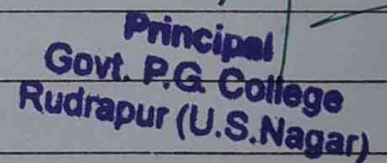 Principal
Govt. P.G. College
Rudrapur (U.S.Nagar)